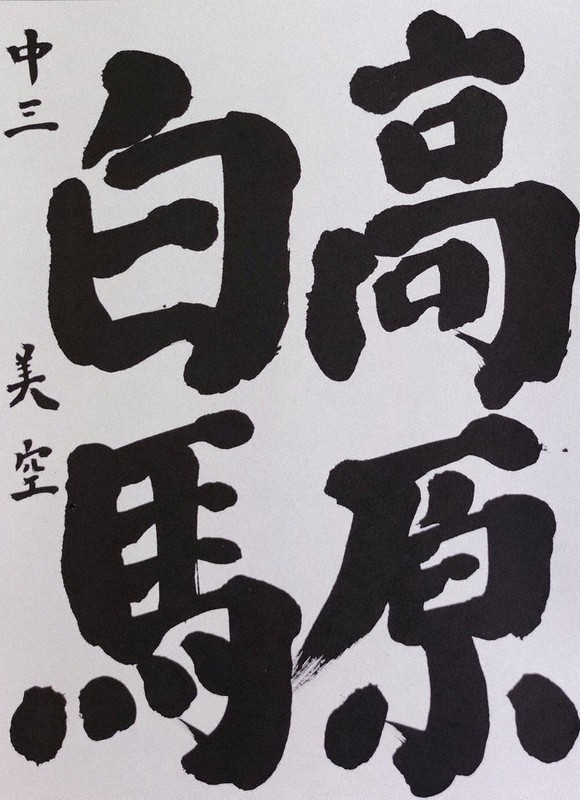 高原
白馬
中三 美空